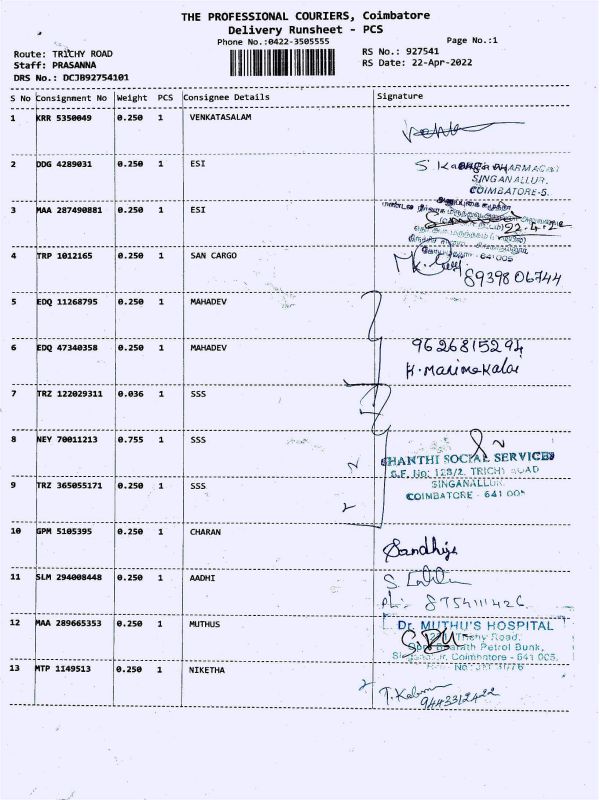 THE PROFESSIONAL COURIERS, Coimbatore
Delivery Runsheet - PCS
Phone No.:0422-3505555
Page No.:1
Route: TRICHY ROAD
RS No.: 927541
Staff: PRASANNA
RS Date: 22-Apr-2022
DRS No.: DCJB92754101
S No Consignment No Weight PCS Consignee Details Signature
1 KRR 5350049 0.250 1 VENKATASALAM
2 DDG 4289031 0.250 1 ESI
SINGANALLUR.
COIMBATORE-5.
3 MAA 287490881 0.250 1 ESI
22.4.22
641 005
4 TRP 1012165 0.250 1 SAN CARGO
8939806744
5 EDQ 11268795 0.250 1 MAHADEV
6 EDQ 47340358 0.250 1 MAHADEV 9626815294
K. Manimekalai
7 TRZ 122029311 0.036 1 SSS
8 NEY 70011213 0.755 1 SSS
SHANTHI SOCIAL SERVICES
S.F. No: 128/2, TRICHY ROAD
9 TRZ 365055171 0.250 1 SSS
SINGANALLUR
COIMBATORE - 641 005
10 GPM 5105395 0.250 1 CHARAN
Sandhiya
11 SLM 294008448 0.250 1 AADHI
ph:- 8754111426
12 MAA 289665353 0.250 1 MUTHUS
Dr. MUTHU'S HOSPITAL
Trichy Road,
Petrol Bunk,
Singanallur, Coimbatore - 641 005.
13 MTP 1149513 0.250 1 NIKETHA
9443312422